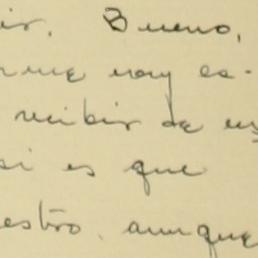 Bueno,
me voy es-
recibir de us
si es que
estro, aunque